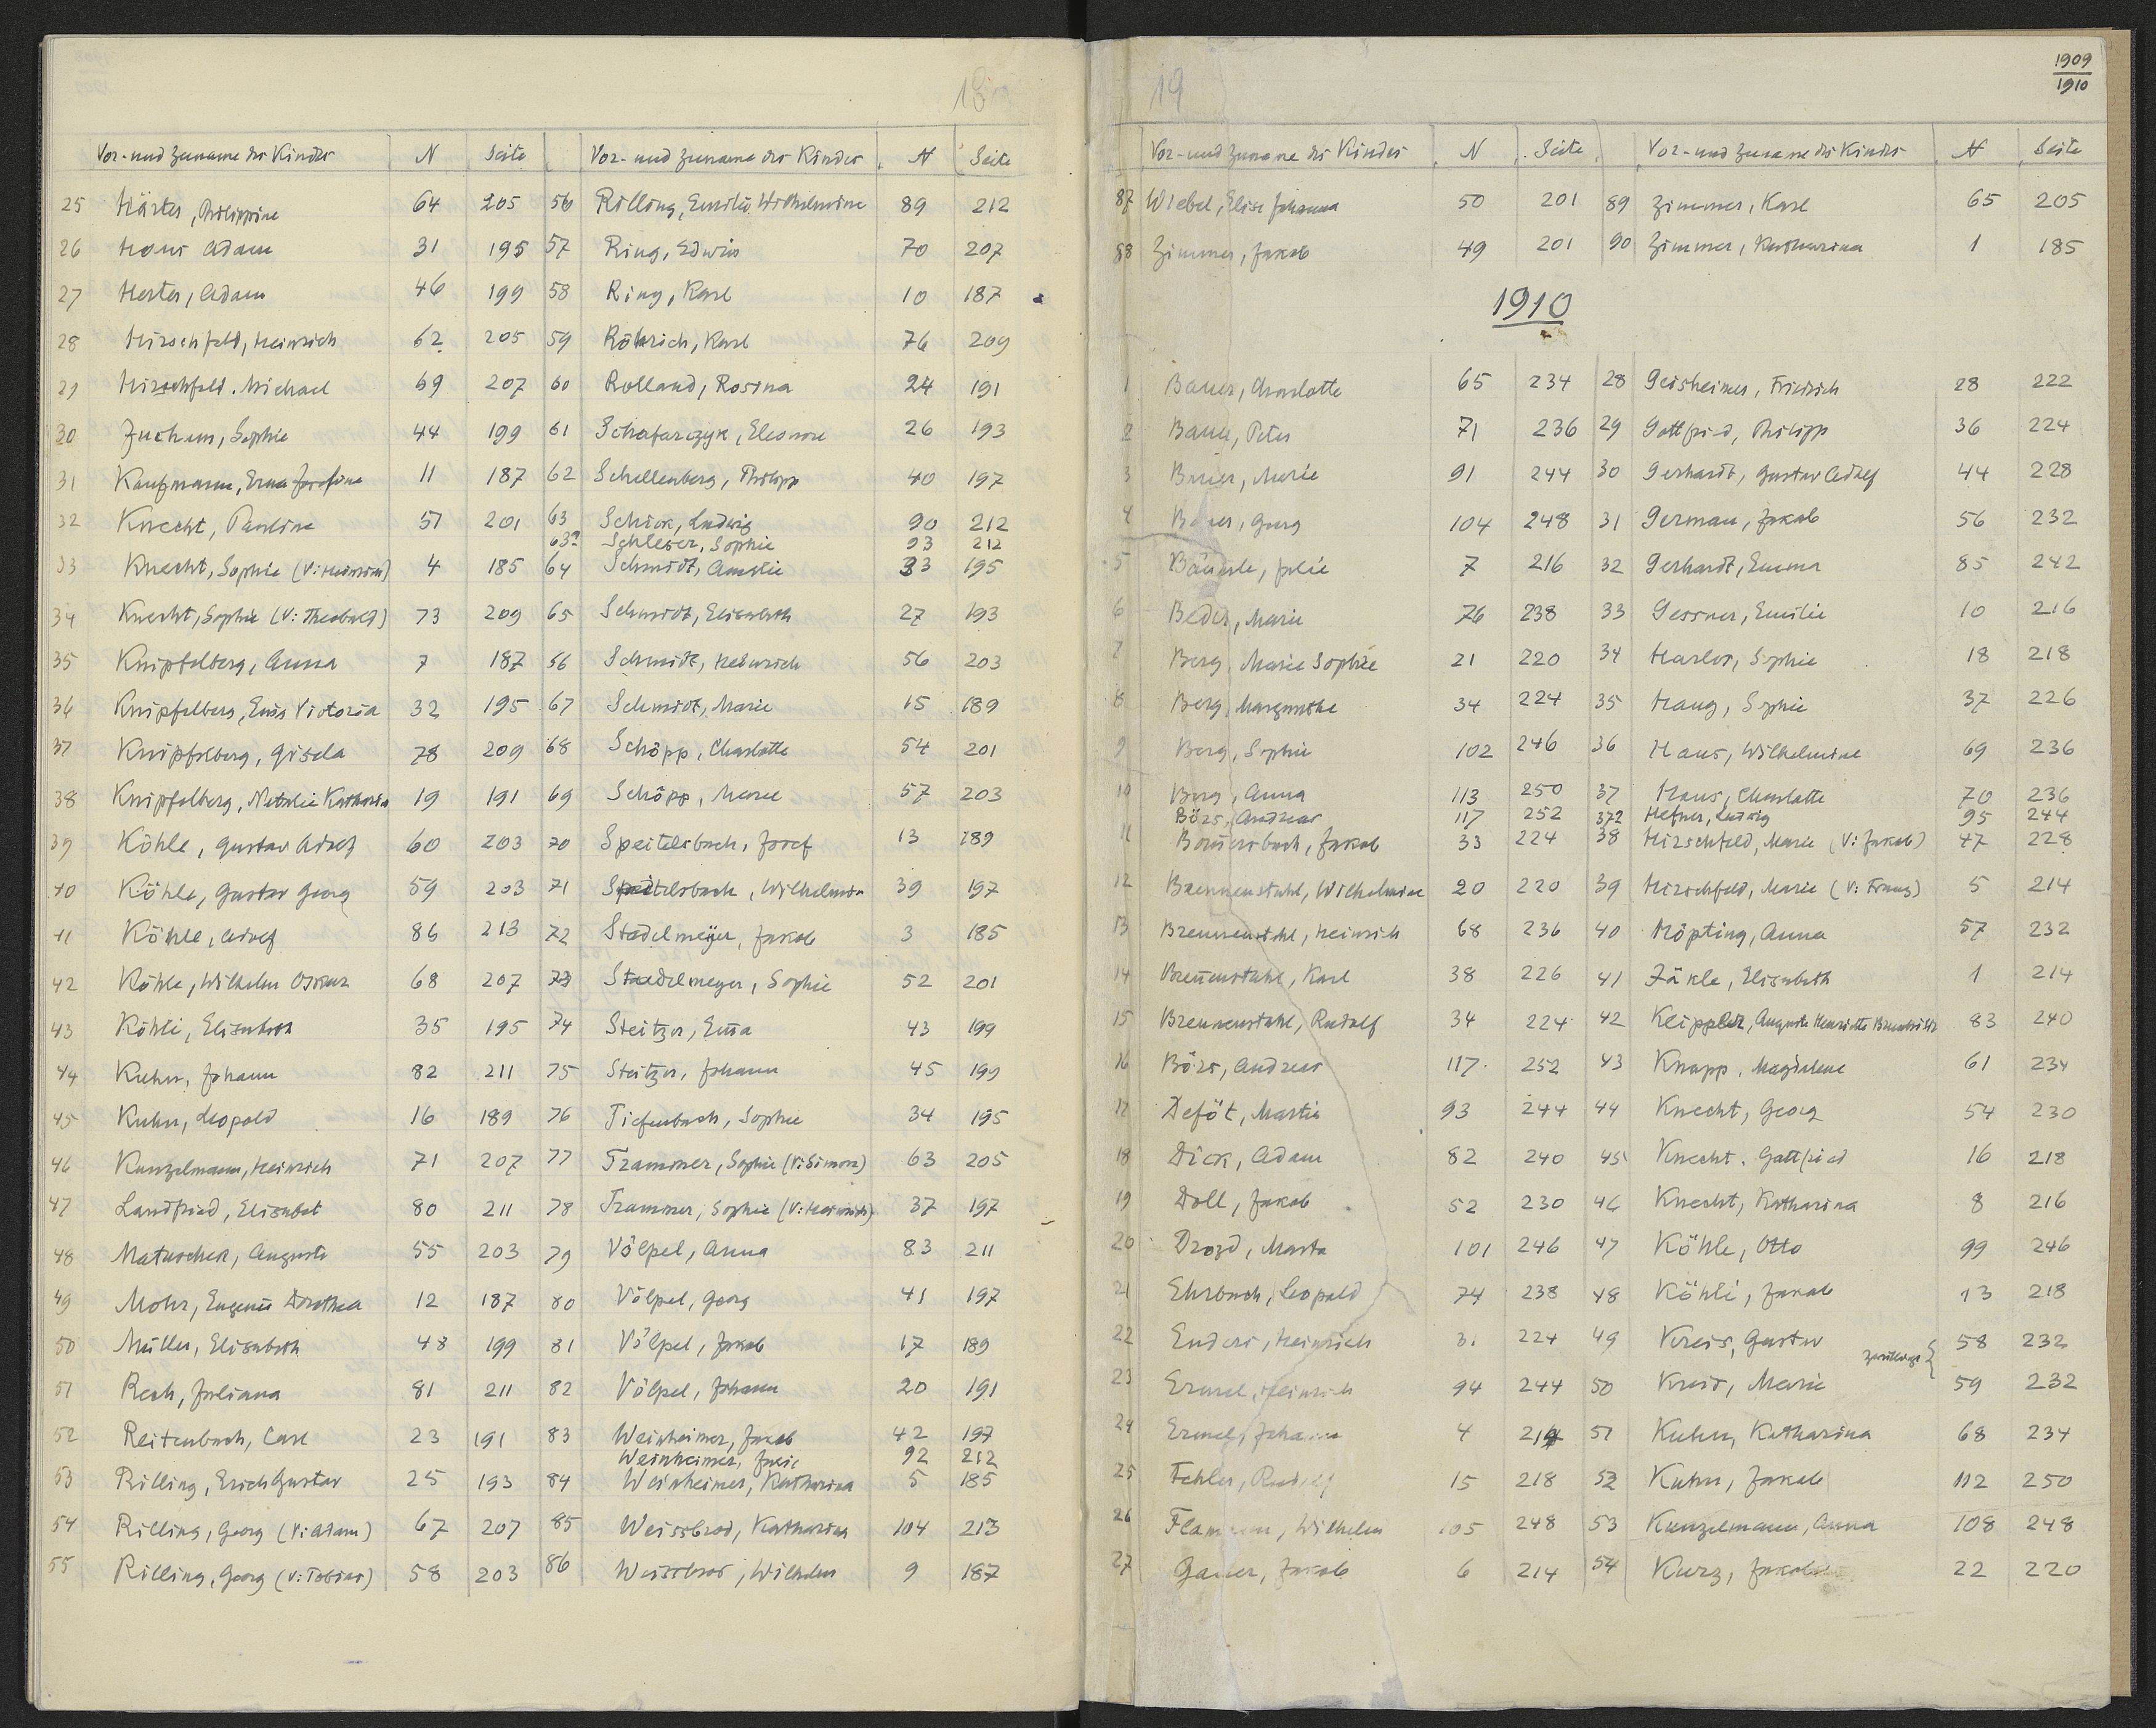 18
Vor- und Zuname des Kindes N Seite
25 Härter, Philippine 64 205
26 Haus Adam 31 195
27 Herter, Adam 46 199
28 Hirschfeld, Heinrich 62 205
29 Hirschfeld, Michael 69 207
30 Juchum, Sophie 44 199
31 Kaufmann, Erna Josefine 11 187
32 Knecht, Pauline 51 201
33 Knecht, Sophie (V: Heinrich) 4 185
34 Knecht, Sophie (V: Theobald) 73 209
35 Knipfelberg, Anna 7 187
36 Knipfelberg, Victoria 32 195
37 Knipfelberg, Gisela 78 209
38 Knipfelberg, Natalie Katharina 19 191
39 Köhle, Gustav Adolf 60 203
40 Köhle, Gustav Georg 59 203
41 Köhle, Adolf 86 213
42 Köhle, Wilhelm Oskar 68 207
43 Köhli, Elisabeth 35 195
44 Kuhn, Johann 82 211
45 Kuhn, Leopold 16 189
46 Kunzelmann, Heinrich 71 207
47 Landfried, Elisabet 80 211
48 Matuschek, Auguste 55 203
49 Mohr, Eugenie Dorothea 12 187
50 Müller, Elisabeth 48 199
51 Rech, Juliana 81 211
52 Reitenbach, Carl 23 191
53 Rilling, Erich Gustav 25 193
54 Rilling, Georg (V: Adam) 67 207
55 Rilling, Georg (V: Tobias) 58 203
Vor- und Zuname des Kindes N Seite
56 Rilling, Emilie Wilhelmine 89 212
57 Ring, Edwin 70 207
58 Ring, Karl 10 187
59 Röhrich, Karl 76 209
60 Rolland, Rosina 24 191
61 Schafarczyk, Eleonore 26 193
62 Schellenberg, Philipp 40 197
63 Schick, Ludwig 90 212
63a Schleser, Sophie 93 212
64 Schmidt, Amalie 33 195
65 Schmidt, Elisabeth 27 193
56 Schmidt, Heinrich 56 203
67 Schmidt, Marie 15 189
68 Schöpp, Charlotte 54 201
69 Schöpp, Marie 57 203
70 Speitelsbach, Josef 13 189
71 Speitelsbach, Wilhelmin 39 197
72 Stadelmeyer, Jakob 3 185
73 Stadelmeyer, Sophie 52 201
74 Steitzer, Emma 43 199
75 Steitzer, Johann 45 199
76 Tiefenbach, Sophie 34 195
77 Trammer, Sophie (V: Simon) 63 205
78 Trammer, Sophie (V: Heinrich) 37 197
79 Völpel, Anna 83 211
80 Völpel, Georg 41 197
81 Völpel, Jakob 17 189
82 Völpel, Johann 20 191
83 Weinheimer, Jakob 42 197
Weinheimer, 92 212
84 Weinheimer, Katharina 5 185
85 Weissbrod, Katharina 104 213
86 Weissbrod, Wilhelm 9 187
19
1909
1910
Vor- und Zuname des Kindes N Seite Vor- und Zuname des Kindes N Seite
87 Wiebel, Elise Johanna 50 201 89 Zimmer, Karl 65 205
88 Zimmer, Jakob 49 201 90 Zimmer, Katharina 1 185
1910
1 Bauer, Charlotte 65 234
2 Bauer, Peter 71 236
3 Bauer, Marie 91 244
4 Bauer, Georg 104 248
5 Bäuerle, Julie 7 216
6 Beder, Marie 76 238
7 Berg, Marie Sophie 21 220
8 Berg, Margarethe 34 224
9 Berg, Sophie 102 246
10 Berg, Anna 113 250
Börs, Andreas 117 252
11 Jakob 33 224
12 Brennenstuhl, Wilhelmine 20 220
13 Brennenstuhl, Heinrich 68 236
14 Brennenstuhl, Karl 38 226
15 Brennenstuhl, Rudolf 34 224
16 Börs, Andreas 117 252
17 Deföt, Martin 93 244
18 Dick, Adam 82 240
19 Doll, Jakob 52 230
20 Drozd, Marta 101 246
21 Ehrbach, Leopold 74 238
22 Enders, Heinrich 31 224
23 Ermel, Heinrich 94 244
24 Ermel, Johanna 4 214
25 Fehler, Rudolf 15 218
26 Flamann, Wilhelm 105 248
27 Gauer, Jakob 6 214
28 Geisheimer, Friedrich 28 222
29 Gottfried, Philipp 36 224
30 Gerhardt, Gustav Adolf 44 228
31 German, Jakob 56 232
32 Gerhardt, Emma 85 242
33 Gessner, Emilie 10 216
34 Harlos, Sophie 18 218
35 Haug, Sophie 37 226
36 Haus, Wilhelmine 69 236
37 Haus, Charlotte 70 236
37a Hefner, Ludwig 95 244
38 Hirschfeld, Marie (V: Jakob) 47 228
39 Hirschfeld, Marie (V: Franz) 5 214
40 Höpting, Anna 57 232
41 Jäkle, Elisabeth 1 214
42 Klippler, Auguste Henriette 83 240
43 Knapp, Magdalene 61 234
44 Knecht, Georg 54 230
45 Knecht, Gottfried 16 218
46 Knecht, Katharina 8 216
47 Köhle, Otto 99 246
48 Köhli, Jakob 13 218
49 Kreis, Gustav 58 232
Zwillinge {
50 Kreis, Marie 59 232
51 Kuhn, Katharina 68 234
52 Kuhn, Jakob 112 250
53 Kunzelmann, Anna 108 248
54 Kurz, Jakob 22 220